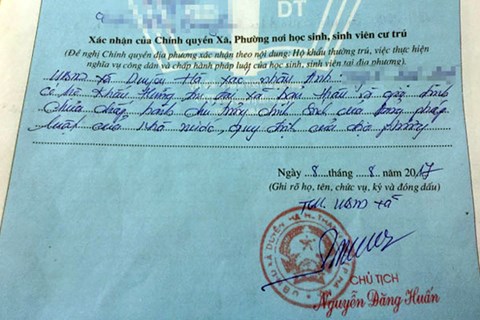 ĐT
Xác nhận của Chính quyền Xã, Phường nơi học sinh, sinh viên cư trú
(Đề nghị Chính quyền địa phương xác nhận theo nội dung: Hộ khẩu thường trú, việc thực hiện
nghĩa vụ công dân và chấp hành pháp luật của học sinh, sinh viên tại địa phương)
UBND xã Duyên Hà xác nhận Anh:
có hộ khẩu thường trú tại xã và gia đình
chưa chấp hành chủ trương chính sách của Đảng pháp
luật của Nhà nước, quy định của địa phương
Ngày 8 tháng 8 năm 2017
(Ghi rõ họ, tên, chức vụ, ký và đóng dấu)
TM. UBND xã
CHỦ TỊCH
Nguyễn Đăng Huấn